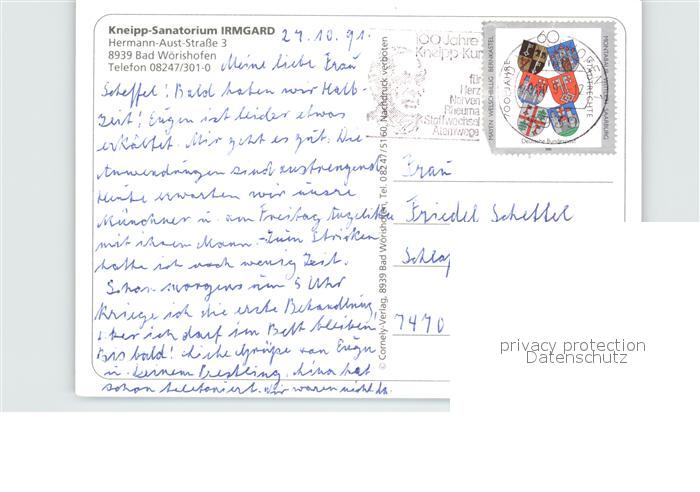 Kneipp-Sanatorium IRMGARD
Hermann-Aust-Straße 3
8939 Bad Wörishofen
Telefon 08247/301-0
29.10.91.
Meine liebe Frau
Scheffel! Bald haben wir Halb-
zeit! Eugen ist leider etwas
erkältet. Mir geht es gut. Die
Anwendungen sind anstrengend.
Heute erwarten wir unsre
Münchner u. am Freitag Angelika
mit ihrem Mann. Zum Stricken
hatte ich noch wenig Zeit.
Schon morgens um 5 Uhr
kriege ich die erste Behandlung,
aber ich darf im Bett bleiben.
Bis bald! Liebe Grüße von Eugen
u.
hat
schon telefoniert. Wir waren nicht da.
© Cornely-Verlag, 8939 Bad Wörishofen, Tel. 08247/5160, Nachdruck verboten
100 Jahre
Kneipp Kur
für
Herz
Nerven
Rheuma
Stoffwechsel
Atemwege
60
MAYEN WELSCHBILLIG BERNKASTEL
MONTABAUR WITTLICH SAARBURG
700 JAHRE
STADTRECHTE
Deutsche Bundespost
Frau
Friedel Scheffel
7470
privacy protection
Datenschutz